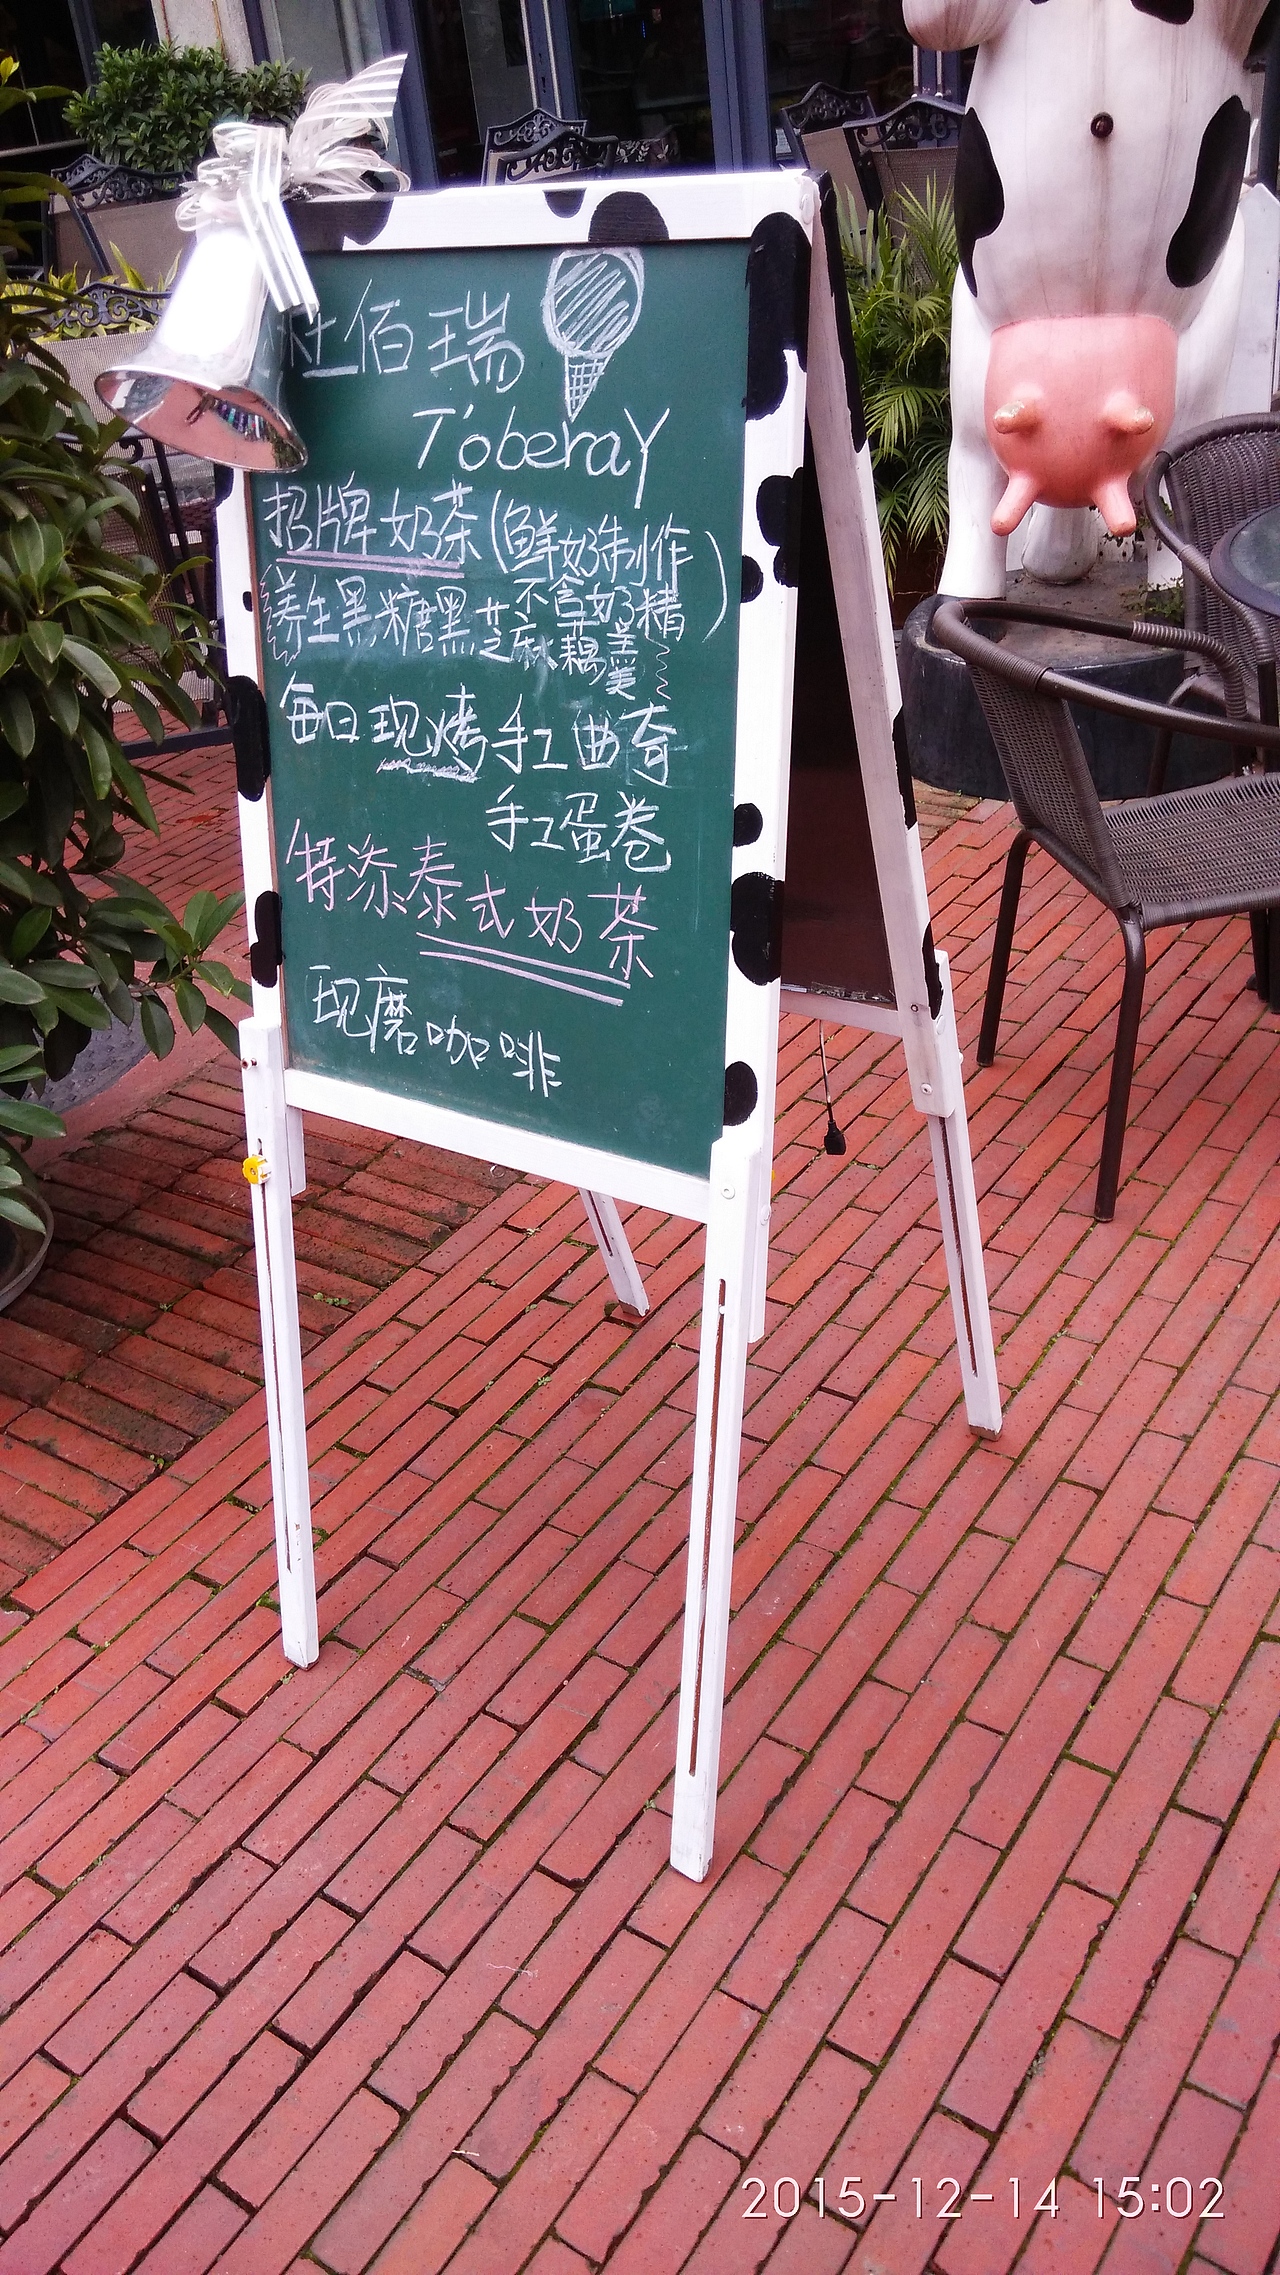 杜佰瑞
T'oberay
招牌奶茶(鲜奶制作
不含奶精)
养生黑糖黑芝麻藕羹
每日现烤手工曲奇
手工蛋卷
特添泰式奶茶
现磨咖啡
2015-12-14 15:02